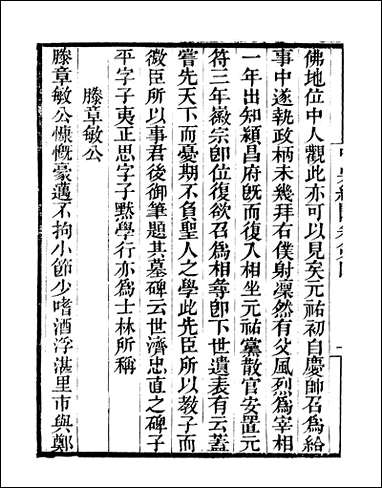 佛地位中人觀此亦可以見矣元祐初自慶師召爲給
事中遂執政柄未幾拜右僕射凜然有父風烈爲宰相
一年出知潁昌府旣而復入相坐元祐黨散官安置元
符三年徽宗卽位復欲召爲相尋卽下世遺表有云蓋
嘗先天下而憂期不負聖人之學此先臣所以敎子而
微臣所以事君後御筆題其墓碑云世濟忠直之碑子
平字子夷正思字子默學行亦爲士林所稱
滕章敏公
滕章敏公慷慨豪邁不拘小節少嗜酒浮湛里市與鄭